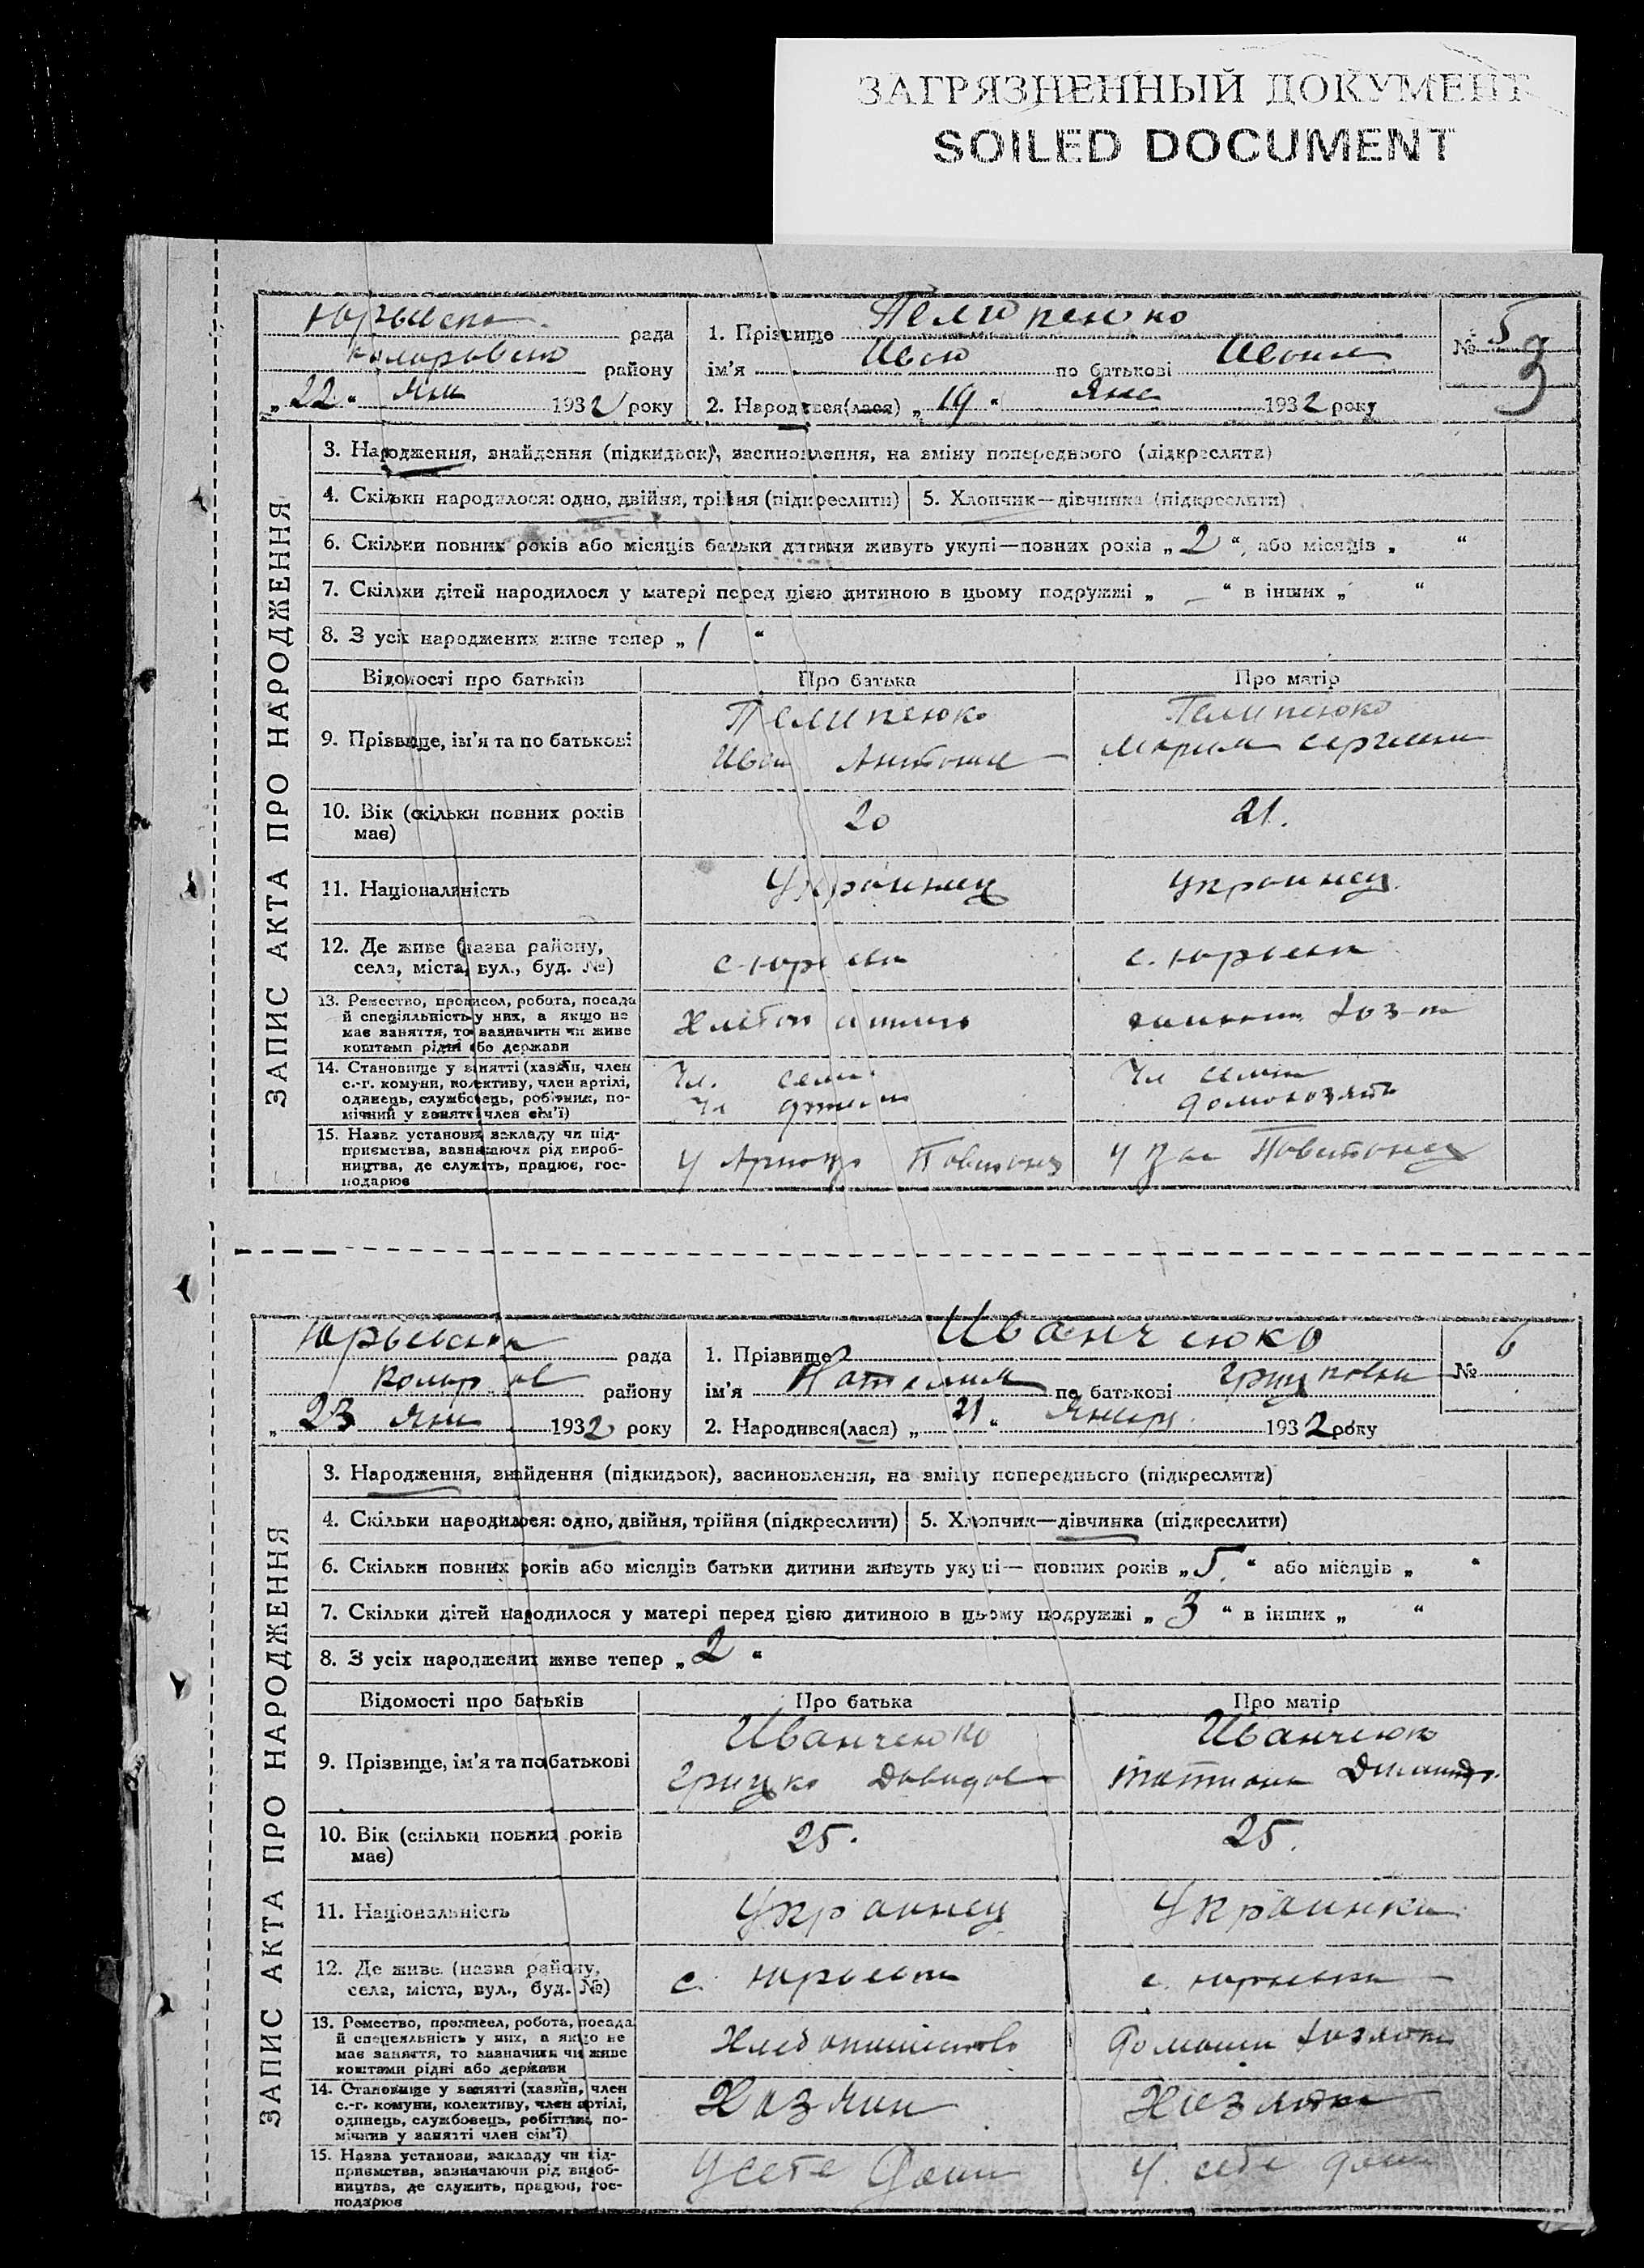 ЗАГРЯЗНЕННЫЙ ДОКУМЕНТ
SOILED DOCUMENT
рада
району
„22“ Янв 1932 року
1. Прізвище Пелипенко
ім'я Иван по батькові Иванов
2. Народився(лася) „19“ Янв 1932 року
№ 5
3
ЗАПИС АКТА ПРО НАРОДЖЕННЯ
3. Народження, знайдення (підкидьок), засиновлення, на зміну попереднього (підкреслити)
4. Скільки народилося: одно, двійня, трійня (підкреслити) 5. Хлопчик—дівчинка (підкреслити)
6. Скільки повних років або місяців батьки дитини живуть укупі—повних років „2“, або місяців „ “
7. Скільки дітей народилося у матері перед цією дитиною в цьому подружжі „ – “ в інших „ “
8. З усіх народжених живе тепер „1“
Відомості про батьків Про батька Про матір
9. Прізвище, ім'я та по батькові
Пелипенко
Иван Антонов
Пелипенко
Мария
10. Вік (скільки повних років
має)
20
21.
11. Національність
Украинец
Украинец
12. Де живе (назва району,
села, міста, вул., буд. №)
13. Ремество, промисел, робота, посада
й спеціяльність у них, а якщо не
має заняття, то вазначити чи живе
коштами рідні або держави
14. Становище у занятті (хазяїн, член
с.-г. комуни, колективу, член артілі,
одинець, службовець, робітник, по-
мічний у занятті член сім'ї)
Чл.
Чл
Чл семьи
15. Назва установи, закладу чи під-
приємства, вазначаючи рід вироб-
ництва, де служить, працює, гос-
подарює
рада
району
„23 Янв 1932 року
1. Прізвище Иванченко
ім'я по батькові
2. Народився(лася) „21“ Январ 1932 року
№ 6
ЗАПИС АКТА ПРО НАРОДЖЕННЯ
3. Народження, знайдення (підкидьок), засиновлення, на зміну попереднього (підкреслити)
4. Скільки народилося: одно, двійня, трійня (підкреслити) 5. Хлопчик—дівчинка (підкреслити)
6. Скільки повних років або місяців батьки дитини живуть укупі— повних років „5.“ або місяців „ “
7. Скільки дітей народилося у матері перед цією дитиною в цьому подружжі „3“ в інших „ “
8. З усіх народжених живе тепер „2“
Відомості про батьків Про батька Про матір
9. Прізвище, ім'я та по батькові
Иванченко
Грицко Давидов
Иванченко
Татиана
10. Вік (скільки повних років
має)
25.
25.
11. Національність
Украинец
Украинка
12. Де живе (назва району,
села, міста, вул., буд. №)
13. Ремество, промисел, робота, посада
й спецеяльність у них, а якщо не
має заняття, то вазначити чи живе
коштами рідні або держави
Хлебопашество
14. Становище у занятті (хазяїн, член
с.-г. комуни, колективу, член артілі,
одинець, службовець, робітник, по-
мічнив у занятті член сім'ї)
Хазяин
15. Назва установи, закладу чи під-
приємства, вазначаючи рід вироб-
ництва, де служить, працює, гос-
подарює
У себе дома
У себе дома